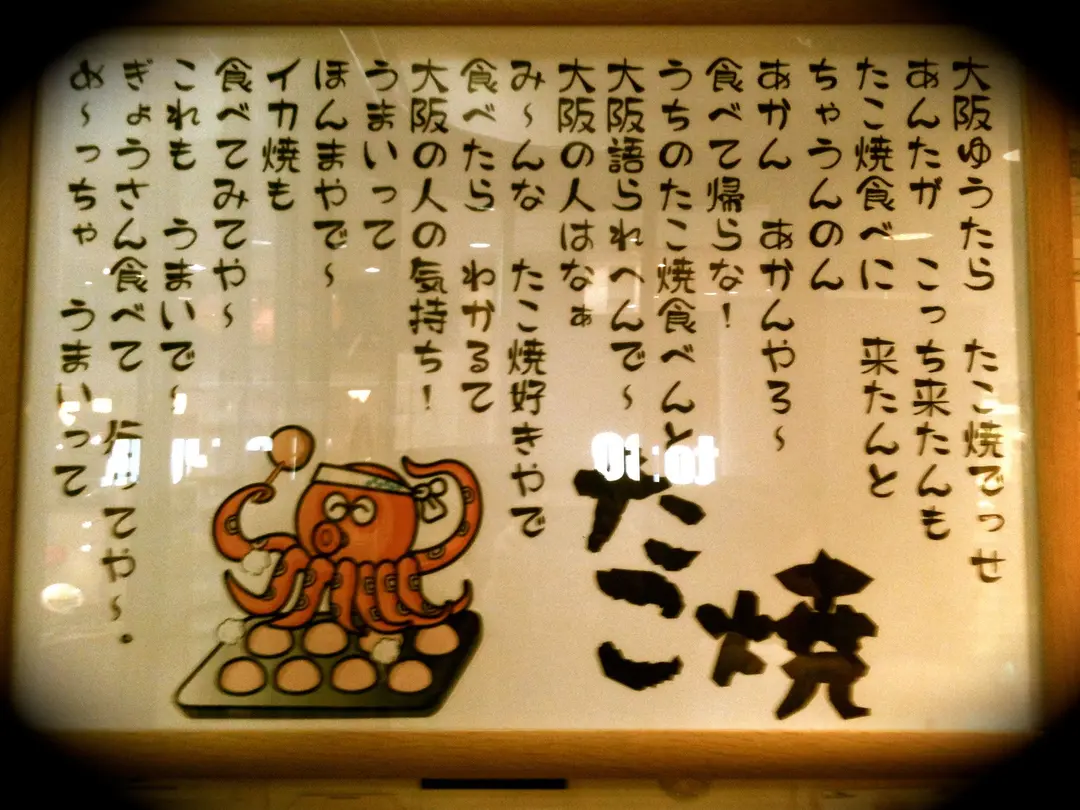 大阪ゆうたら　たこ焼でっせ
あんたが　こっち来たんも
たこ焼食べに　来たんと
ちゃうんのん
あかん　あかんやろ～
食べて帰らな！
うちのたこ焼食べんと
大阪語られへんで～
大阪の人はなぁ
み～んな　たこ焼好きやで
食べたら　わかるて
大阪の人の気持ち！
うまいって
ほんまやで～
イカ焼も
食べてみてや～
これも　うまいで～
ぎょうさん食べて　ってや～.
め～っちゃ　うまいって
たこ焼